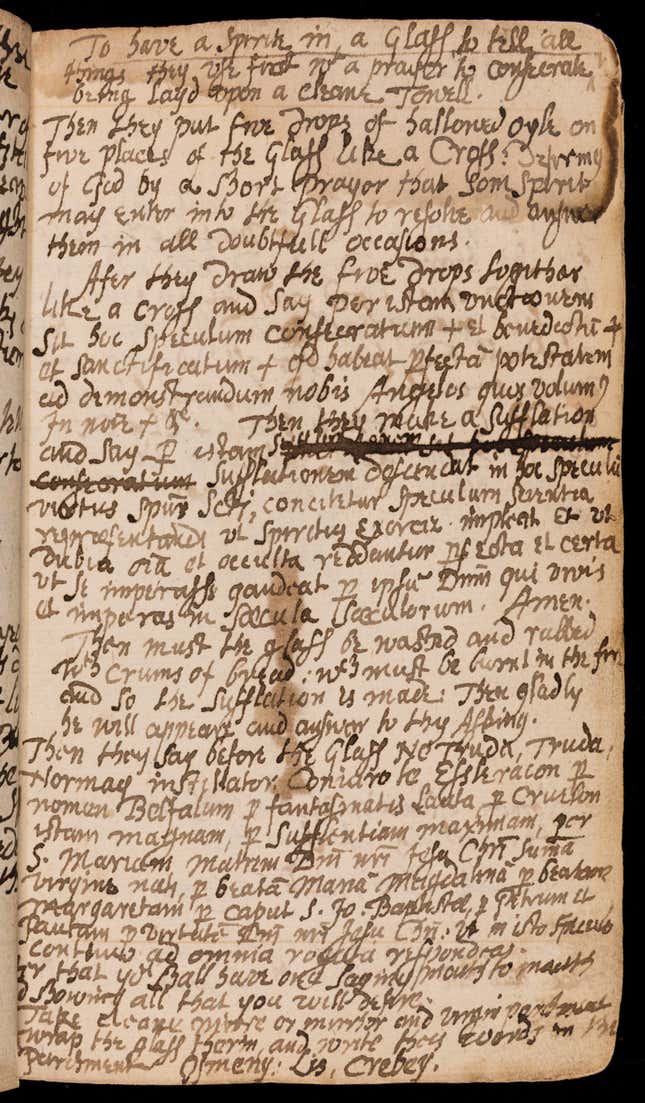 To have a Spirit in a Glass to tell all
things they use first wth a prayer to consecrate
being layd upon a cleane Towell.
Then they put five drops of hallowed oyle on
five places of the Glass like a Cross:
of God by a short prayor that som spirit
may enter into the Glass to resolve and answer
them in all doubtfull occasions.
Afer they draw the five drops togither
like a cross and say per istam unctionem
Sit hoc Speculum consecratum + et benedictū +
et sanctificatum + qd habeat pfectā potestatem
ad demonstrandum nobis Angelos quos volum9
In noie + &c. Then they make a Sufflation
and say p istam
consecratum Sufflationem descendat in hoc speculū
virtus spūs Scti, concitetur speculum scientia
representandi ut spiritus exorciz. impleat et ut
dubia oīa et occulta reddantur pfecta et certa
ut se imperasse gaudeat p ipsū Dnm qui vivis
et imperas in sæcula sæculorum. Amen.
Then must the glass be washed and rubbed
wth crums of bread: wch must be burnt in the fire
and so the sufflation is made: Then gladly
he will appeare and answer to thy Asking.
Then they say before the Glass Ne Truda, Truda,
Normag instillator, Coniuro te Essteracon p
nomen Beltalum p fantasmatis Laata, p Cruilon
istam magnam, p sufficientiam maximam, per
S. Mariam matrem Dnī nrī Jesu Chrī Sumā
virginē nati, p beatā Mariā Magdalenā p beatam
Margaretam p caput S. Jo. Baptistæ, p Petrum et
Paulum p virtutē Dnī nrī Jesu Chrī: ut in isto speculo
continuo ad omnia rogata respondeas.
that yo shall have one saying mouth to mouth
showing all that you will desire.
Take cleane or mirror and virgin parchment
wrap the glass therin, and write theis words in the
Parchment Osmeny: Lis, Crebey.